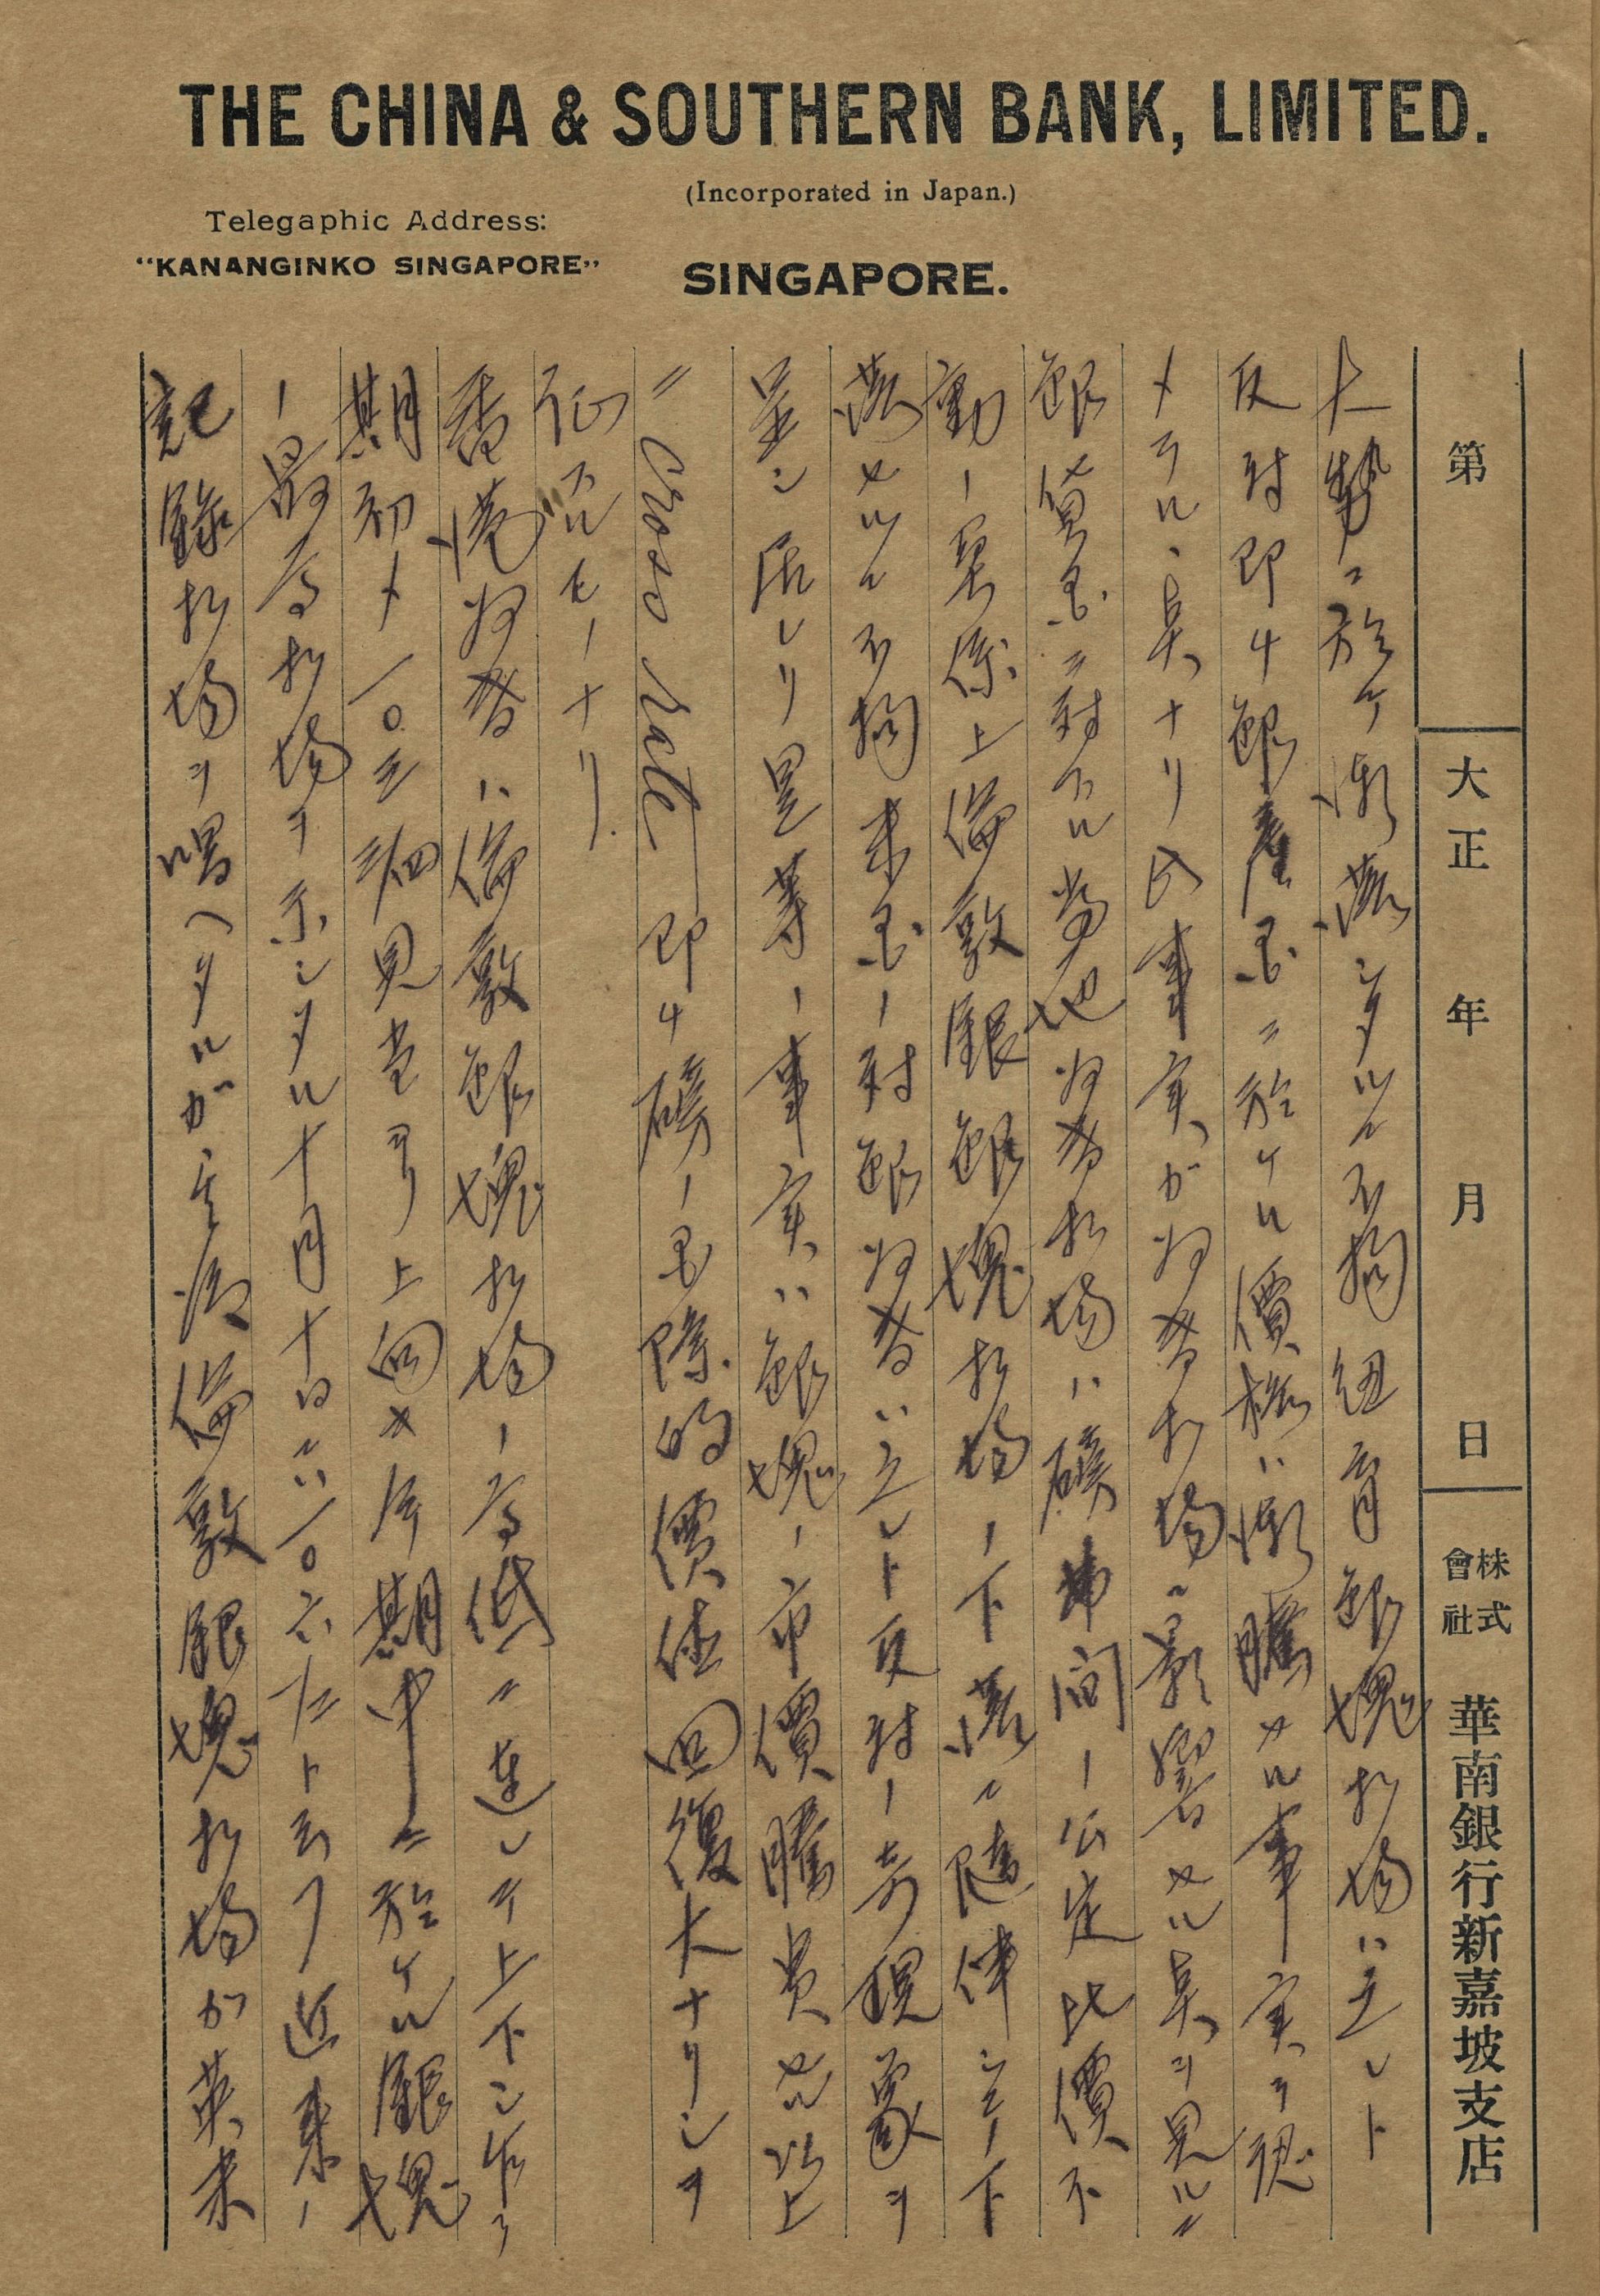 THE CHINA & SOUTHERN BANK, LIMITED.
(Incorporated in Japan.)
Telegaphic Address:
"KANANGINKO SINGAPORE"
SINGAPORE.
第 大正 年 月 日 株式會社 華南銀行新嘉坡支店
大勢ニ於テ漸落シタルニ不拘紐育銀塊相場ハ之レト
反対即チ銀産国ニ於ケル価格ハ漸騰セル事実ヲ認
メラル、点ナリ此事実ガ為替相場ニ影響セル点ヲ見ルニ
銀貨国ニ対スル当地為替相場ハ磅弗間ノ公定比價不
動ノ関係上倫敦銀塊相場ノ下落ニ随伴シテ下
落セルニ不拘米国ノ対銀為替ハ之レト反対ノ奇現象ヲ
呈シ居レリ是等ノ事実ハ銀塊ノ市價騰貴セル以上
ニ Cross rate 即チ磅ノ国際的價値回復大ナリシヲ
証スルモノナリ.
香港為替ハ倫敦銀塊相場ノ高低ニ連レテ上下シ
期初メ一〇三 見当ヨリ上向セ 期中ニ於ケル銀塊
ノ最高相場ヲ示シタル十月十日ニハ一〇六 ト云フ近来ノ
記録相場ヲ唱ヘタルガ其後倫敦銀塊相場ガ英米